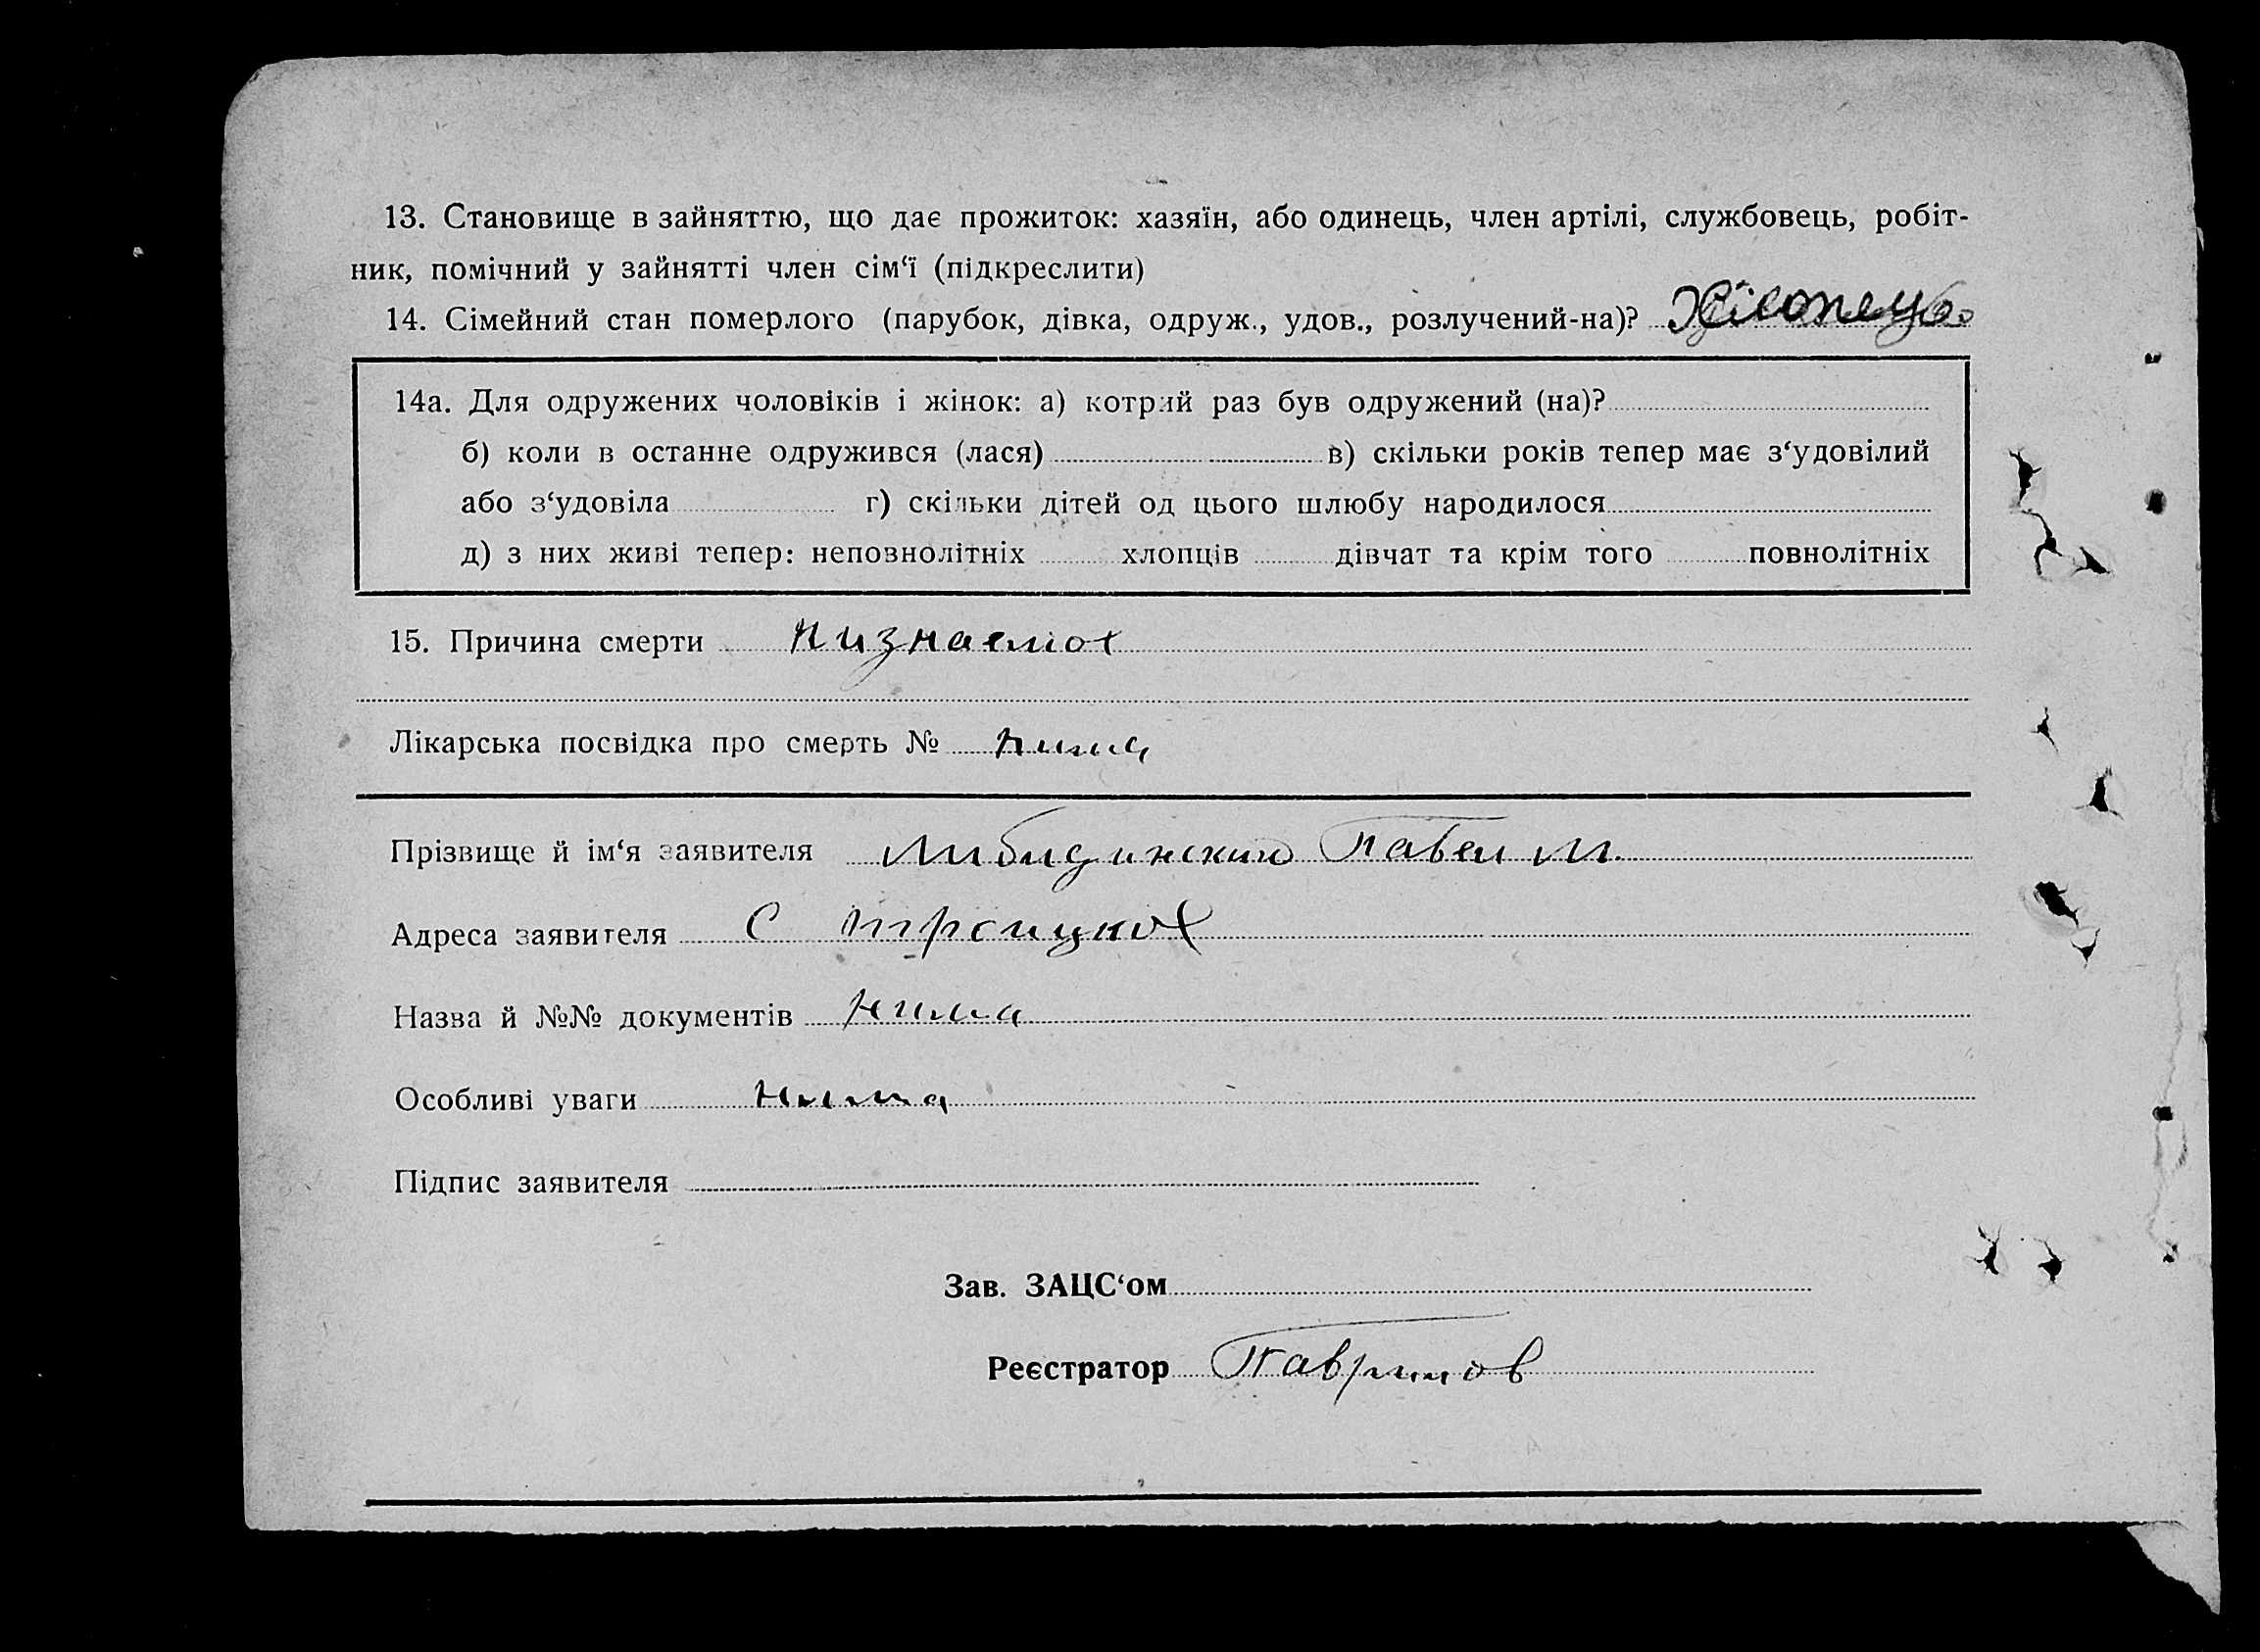 13. Становище в зайняттю, що дає прожиток: хазяїн, або одинець, член артілі, службовець, робіт-
ник, помічний у зайнятті член сім‘ї (підкреслити)
14. Сімейний стан померлого (парубок, дівка, одруж., удов., розлучений-на)? Хлопець
14а. Для одружених чоловіків і жінок: а) котрий раз був одружений (на)?
б) коли в останне одружився (лася) в) скільки років тепер має з‘удовілий
або з‘удовіла г) скільки дітей од цього шлюбу народилося
д) з них живі тепер: неповнолітніх хлопців дівчат та крім того повнолітніх
15. Причина смерти
Лікарська посвідка про смерть № нима
Прізвище й ім‘я заявителя Либидинский Павел М.
Адреса заявителя С
Назва й №№ документів нима
Особливі уваги нима
Підпис заявителя
Зав. ЗАЦС‘ом
Реєстратор